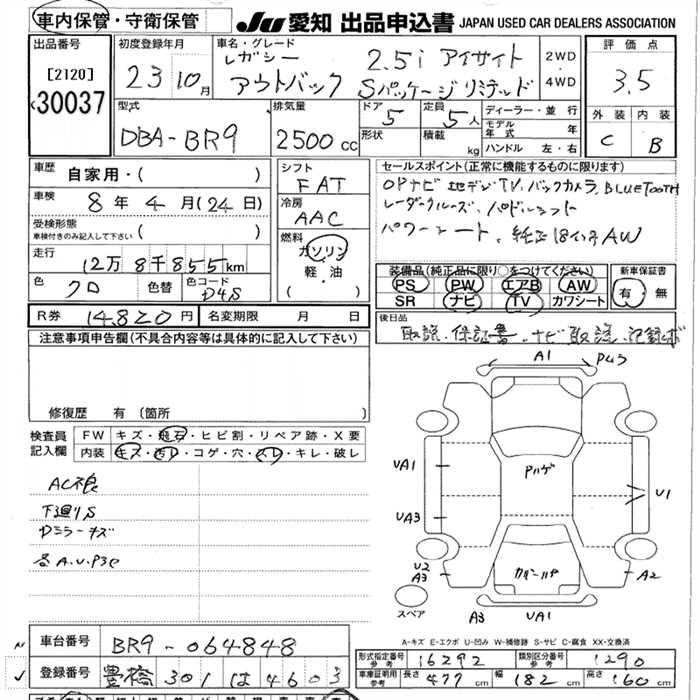 車内保管・守衛保管 JU 愛知 出品申込書 JAPAN USED CAR DEALERS ASSOCIATION
出品番号 初度登録年月 車名・グレード 評価点
[2120] 23 10月 レガシー 2.5i アイサイト 2WD
30037 アウトバック Sパッケージリミテッド 4WD 3.5
型式 排気量 ドア 定員 ディーラー・並行 外装 内装
DBA-BR9 2500cc 5 5人 モデル年式 年 C B
形状 積載 kg ハンドル 左・右
車歴 自家用・( ) シフト セールスポイント(正常に機能するものに限ります)
FAT OPナビ 地デジTV, バックカメラ, BLUETOOTH
車検 8年 4月(24日) 冷房 レーダークルーズ, パドルシフト
AAC パワーシート, 純正18インチAW
受検形態 ( )
車検付きのみ記入して下さい
燃料
走行 12万8千855km ガソリン 装備品(純正品に限り○をつけてください) 新車保証書
軽・油 PS PW エアB AW 有・無
色 クロ 色替 色コード D4S ( ) SR ナビ TV カワシート
R券 14,820円 名変期限 月 日 後日品
取説・保証書・ナビ取説・記録ボ
注意事項申告欄(不具合内容等は具体的に記入して下さい)
修復歴 有 (箇所
検査員 FW キズ・飛石・ヒビ割・リペア跡・X要
記入欄 内装 キズ・汚レ・コゲ・穴・スレ・キレ・破レ
AC不良
下廻りS
Dミラーキズ
各A.U.P3C
A1
Pハゲ
UA1
U1
UA3
U2
A3
カバーハゲ
A2
スペア
A3 UA1
A-キズ E-エクボ U-凹み W-補修跡 S-サビ C-腐食 XX-交換済
車台番号 BR9-064848
登録番号 豊橋 301 は 4603
形式指定番号 参考 16292 類別区分番号 参考 1290
車庫証明用 参考 長さ 477cm 幅 182cm 高さ 160cm